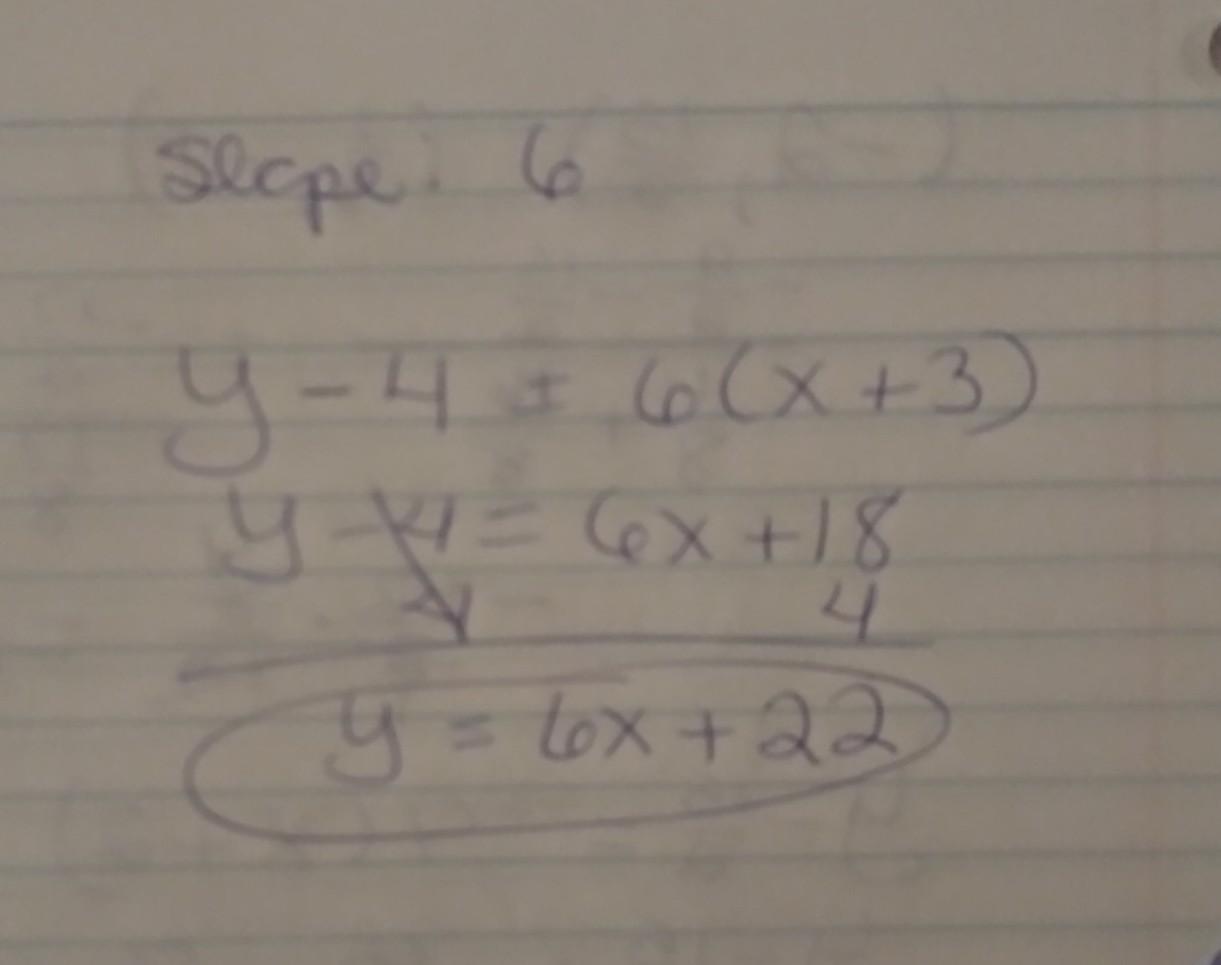 Slope: 6
y - 4 = 6(x + 3)
y - 4 = 6x + 18
4 4
y = 6x + 22